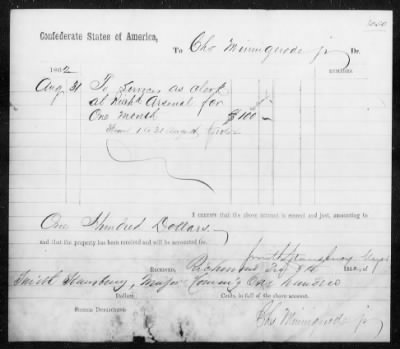 Confederate States of America,
To Chs Minnigerode jr Dr.
186
Aug 31 To Services as clerk
at Richd Arsenal for
One month $100
From 1 to 31 August,
I CERTIFY that the above account is correct and just, amounting to
One Hundred Dollars
and that the property has been received and will be accounted for.
RECEIVED, Richmond
Smith Stansbery, Major Comm'g One Hundred
Dollars Cents, in full of the above account.
SIGNED DUPLICATES
Chs Minnigerode jr